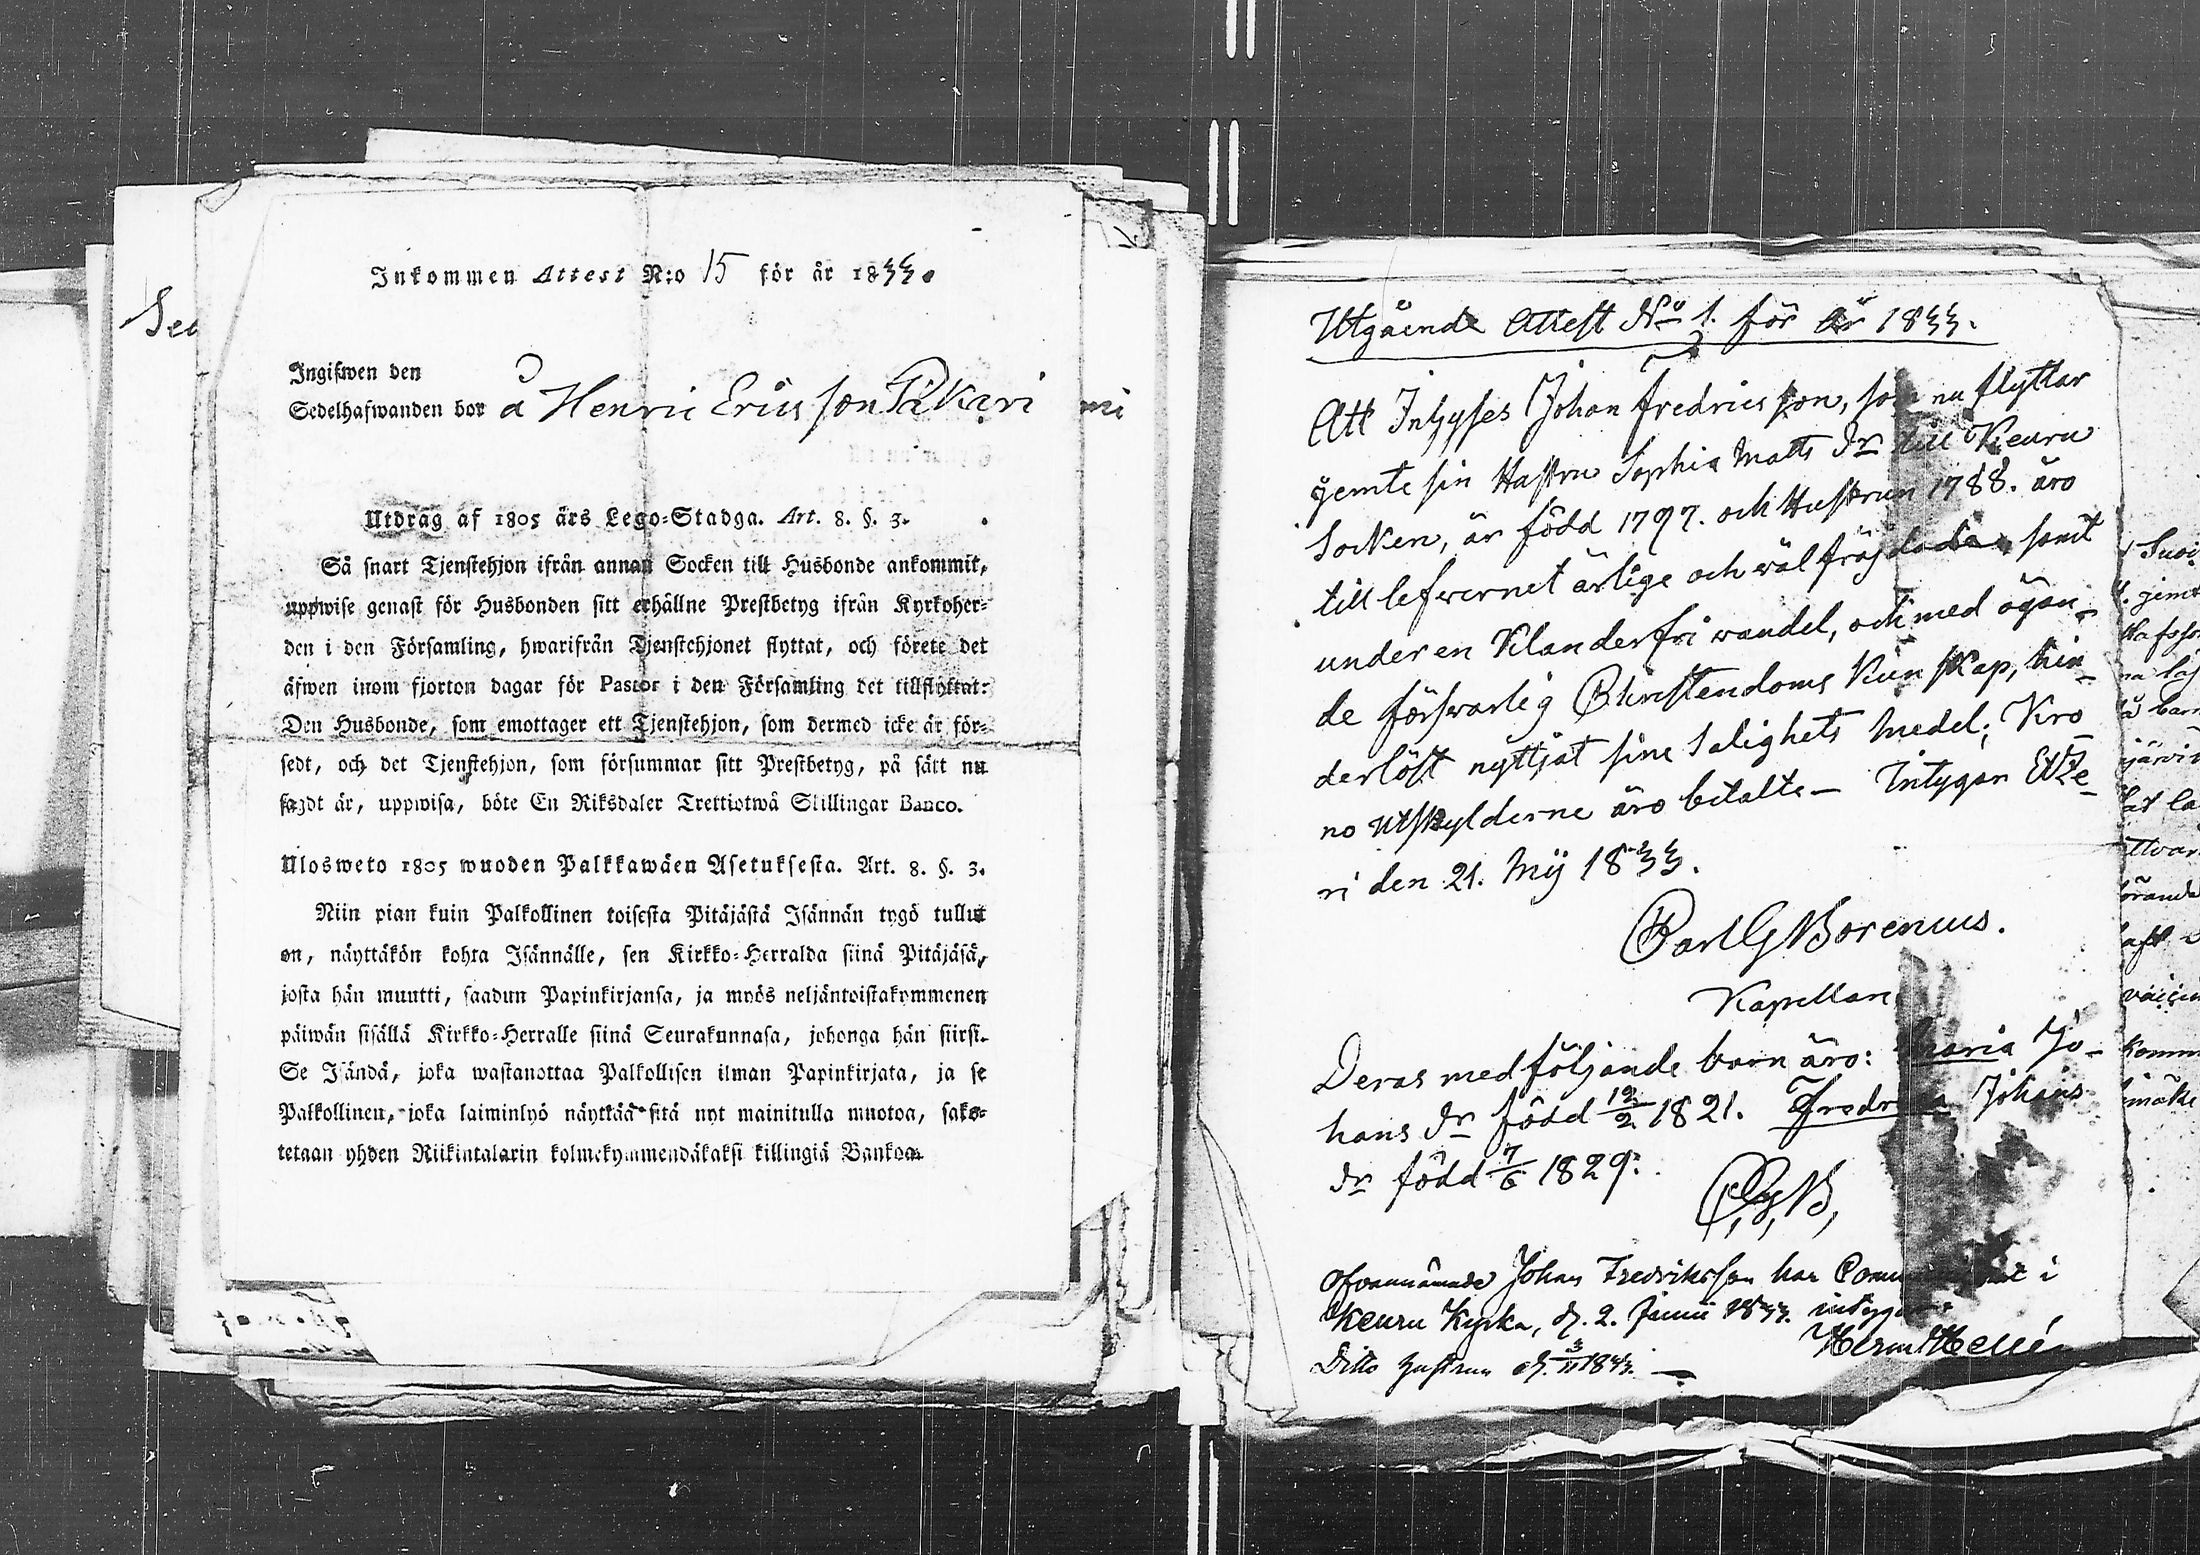 Inkommen Attest N:o 15 för år 1833.
Ingifwen den
Sedelhafwanden bor å Henric Ericsson Pikari
Utdrag af 1805 års Lego-Stadga. Art. 8. §. 3.
Så snart Tjenstehjon ifrån annan Socken till Husbonde ankommit,
uppwise genast för Husbonden sitt erhållne Prestbetyg ifrån Kyrkoher-
den i den Församling, hwarifrån Tjenstehjonet flyttat, och förete det
äfwen inom fjorton dagar för Pastor i den Församling det tillflyttat:
Den Husbonde, som emottager ett Tjenstehjon, som dermed icke är för-
sedt, och det Tjenstehjon, som försummar sitt Prestbetyg, på sätt nu
sagdt är, uppwisa, böte En Riksdaler Trettiotwå Skillingar Banco.
Ulosweto 1805 wuoden Palkkawäen Asetuksesta. Art. 8. §. 3.
Niin pian kuin Palkollinen toisesta Pitäjästä Isännän tygö tullut
on, näyttäkön kohta Isännälle, sen Kirkko-Herralda siinä Pitäjäsä,
josta hän muutti, saadun Papinkirjansa, ja myös neljäntoistakymmenen
päiwän sisällä Kirkko-Herralle siinä Seurakunnasa, johonga hän siirsi.
Se Isändä, joka wastanottaa Palkollisen ilman Papinkirjata, ja se
Palkollinen, joka laiminlyö näyttää sitä nyt mainitulla muotoa, sako-
tetaan yhden Riikintalarin kolmekymmendäkaksi killingiä Bankoa.
Utgående Attest No 1. för år 1833.
Att Intygses Johan Fredricsson, som nu flyttar
jemte sin Hustru Sophia Matts dr till Keuru
Socken, är född 1797. och Hustrun 1788. äro
till lefwernet ärlige och wälfräjdade, samt
under en Klanderfri wandel, och med ägan-
de försvarlig Christendoms Kunskap, hin-
derlöst nyttjat sine Salighets Medel; Kro-
no utskylderne äro betalte – Intygar Etze-
ri den 21. Mij 1833.
Carl G Borenius.
Kapellan
Deras medföljande barn äro: Maria Jo-
hans dr född 12/2 1821. Fredrika Johans
dr född 7/6 1829.
C,G,B,
Ofvannämnde Johan Fredriksson har i
Keuru Kyrka, d. 2. Junii 1833. intygar
Herm Helle
Ditto hustrun d. 3/11 1833.